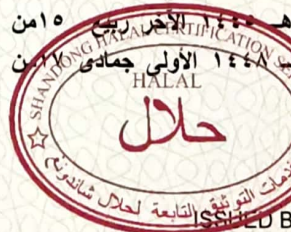 ١٥من ربيع الآخر ١٤٤٥هـ
١٧من جمادى الأولى ١٤٤٨
SHANDONG HALAL CERTIFICATION SE
HALAL
حلال
خدمات التوثيق التابعة لحلال شاندونغ
ISSUED B